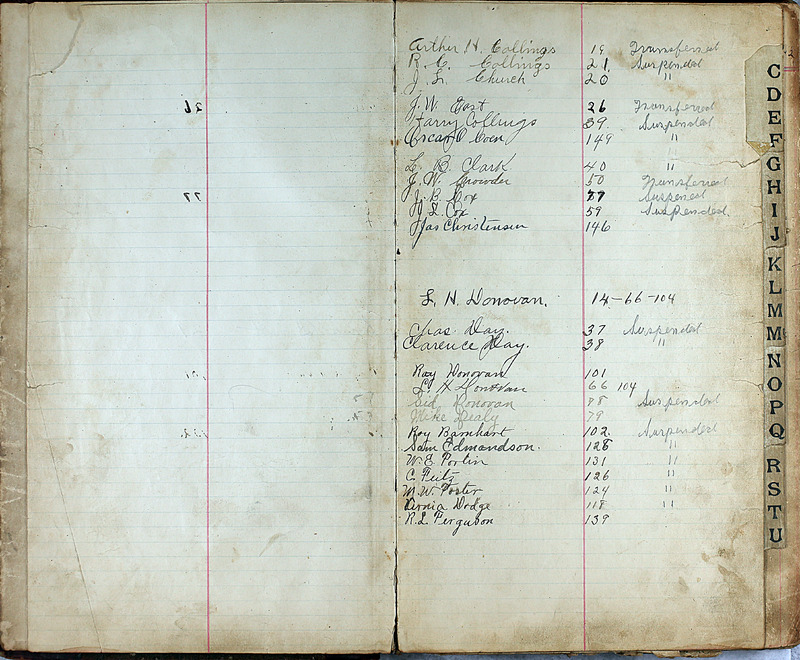 Arthur H. Collings 19 Transferred
R. C. Collings 21 Suspended
J. L. Church 20 "
J. W. East 26 Transferred
Harry Collings 39 Suspended
Oscar O Coen 149 "
L. B. Clark 40 "
J. W. Crowder 50 Transferred
J. B. Cox 87 Suspened
H L Cox 59 Suspended.
Jas Christensen 146
L. H. Donovan. 14-66-104
Chas. Day. 37 Suspended
Clarence Day. 38 "
Ray Donovan 101
L. H Donovan 66 104
Sid Donovan 88 Suspended
Mike Dealy 79
Roy Barnhart 102. Suspended
Sam Edmandson. 128 "
W. E. Forlin 131 "
C. Feitz 126 "
M. W. Foster 124 "
Vernia Dodge 118 "
R. L. Ferguson 139
26
77
C
D
E
F
G
H
I
J
K
L
M
M
N
O
P
Q
R
S
T
U